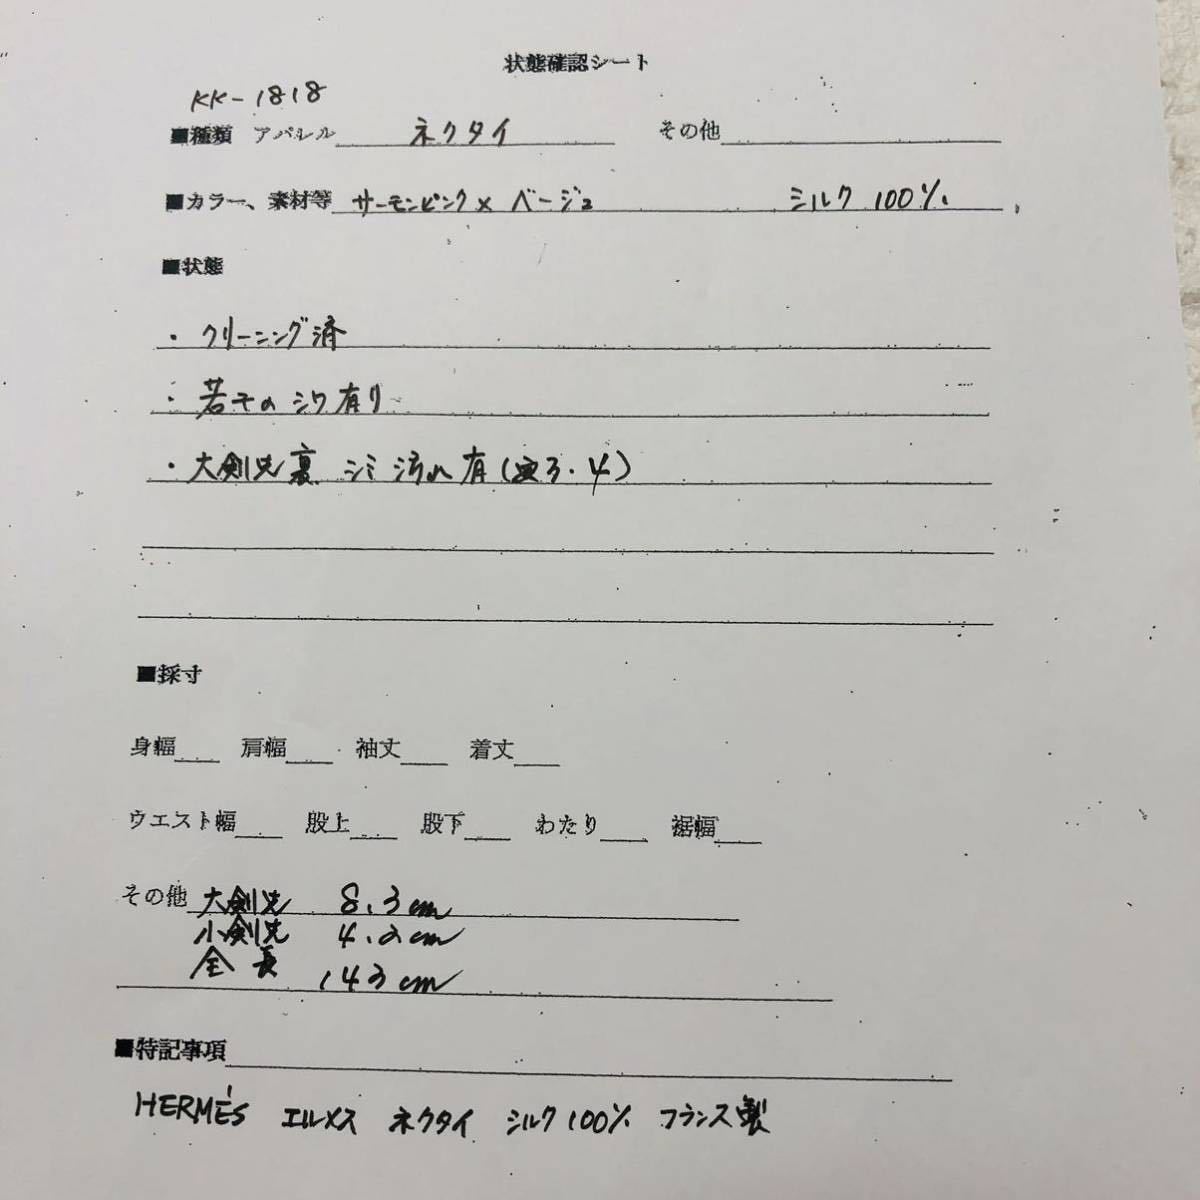 状態確認シート
KK-1818
■種類 アパレル ネクタイ その他
■カラー、素材等 サーモンピンク×ベージュ シルク 100%
■状態
・クリーニング済
・若干のシワ有り
・大剣先裏 シミ 汚れ 有(写3.4)
■採寸
身幅 肩幅 袖丈 着丈
ウエスト幅 股上 股下 わたり 裾幅
その他 大剣先 8.3cm
小剣先 4.2cm
全長 143cm
■特記事項
HERMÈS エルメス ネクタイ シルク100% フランス製